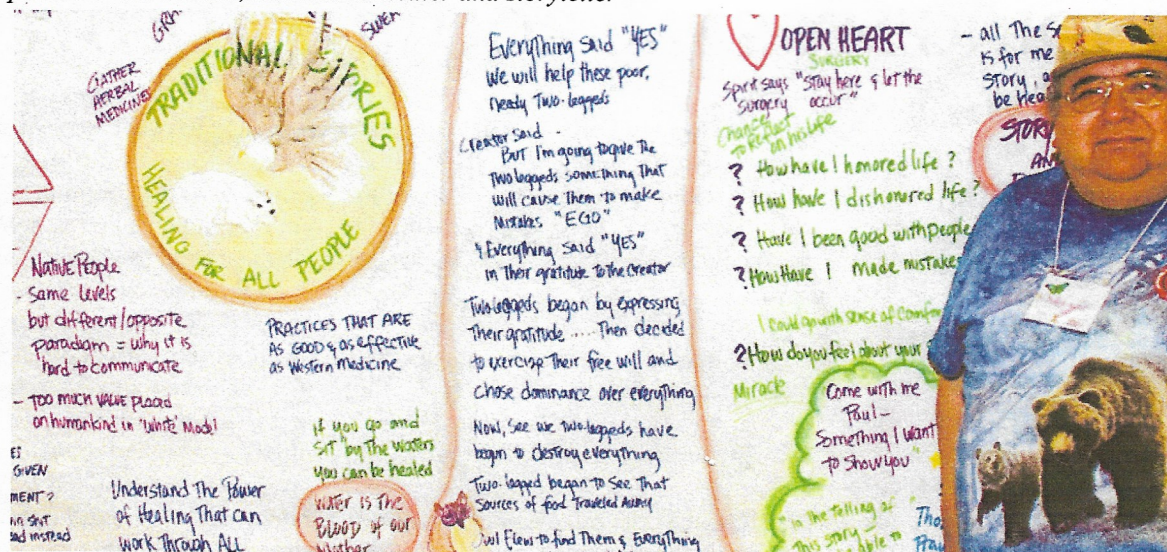 and storyteller
GATHER
HERBAL
MEDICINES
TRADITIONAL STORIES
HEALING FOR ALL PEOPLE
Native People
- Same levels
but different/opposite
paradigm = why it is
hard to communicate
- TOO MUCH VALUE placed
on humankind in 'white' Model
GIVEN
MENT?
instead
PRACTICES THAT ARE
AS GOOD & as effective
as Western Medicine
if you go and
SIT by The Waters
you can be healed
Understand The Power
of Healing That can
work Through ALL
WATER IS The
BLOOD of our
Mother
Everything Said "YES"
We will help these poor,
needy Two-leggeds
Creator Said -
But I'm going to give The
Two leggeds something That
will cause Them to make
Mistakes "EGO"
& Everything Said "YES"
in Their gratitude to the Creator
Two leggeds began by expressing
Their gratitude ..... Then decided
to exercise Their free will and
chose dominance over everything
Now, See we two-leggeds have
begun to destroy everything
Two-legged began to See That
Sources of food Traveled Away
Owl Flew to find Them & Everything
OPEN HEART
SURGERY
Spirit says "Stay here & let the
Surgery occur"
Chance
to Reflect
on his life
? How have I honored life?
? How have I dishonored life?
? Have I been good with people
? How Have I Made mistakes
I could go with sense of Comfort
? How do you feel about your
Miracle
Come with me
Paul -
Something I want
to Show you"
"in The telling of
This story
able to
- all The
is for me
Story,
be
STORY
AN